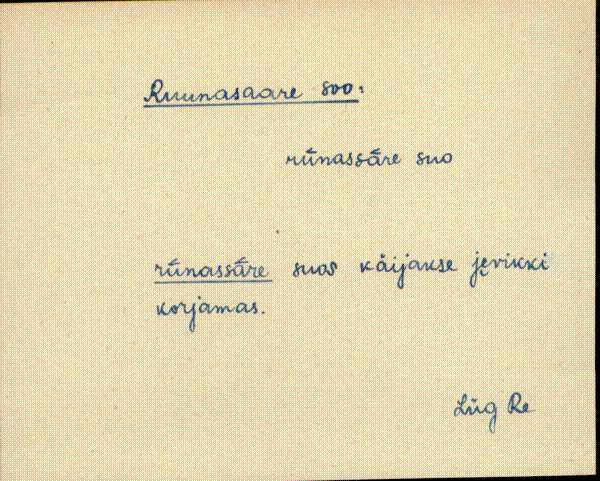 Ruunasaare soo:
rū́nassā́re suo
rū́nassā́re suos käijakse jęvikki
korjamas.
Lüg Re